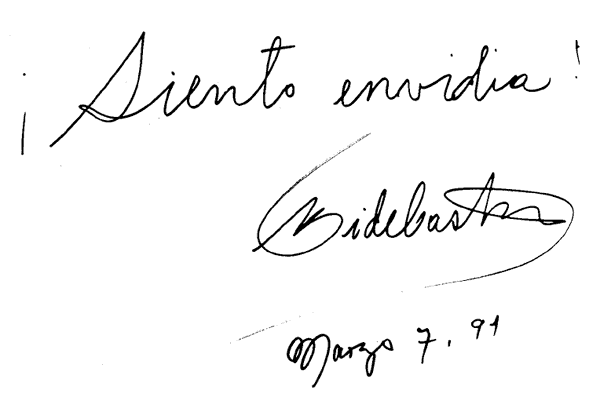 ¡Siento envidia!
Bidebasth
Marzo 7, 91